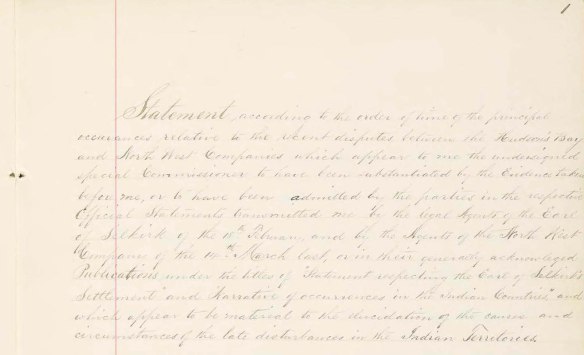 1
Statement, according to the order of time of the principal
occurances relative to the recent disputes between the Hudson's Bay
and North West Companies which appear to me the undersigned
special Commissioner to have been substantiated by the Evidence taken
before me, or to have been admitted by the parties in the respective
Official Statements transmitted me by the legal Agents of the Earl
of Selkirk of the 18th February, and by the Agents of the North West
Companies of the 14th March last, or in their generally acknowledged
Publications under the titles of "Statement respecting the Earl of Selkirk's
Settlement" and Narrative of occurrences in the Indian Countries" and
which appear to be material to the elucidation of the causes and
circumstances of the late disturbances in the Indian Territories.